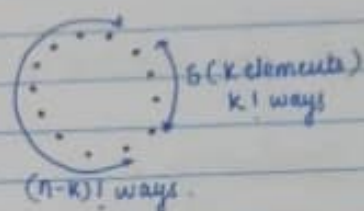 S(k elements)
k! ways
(n-k)! ways.